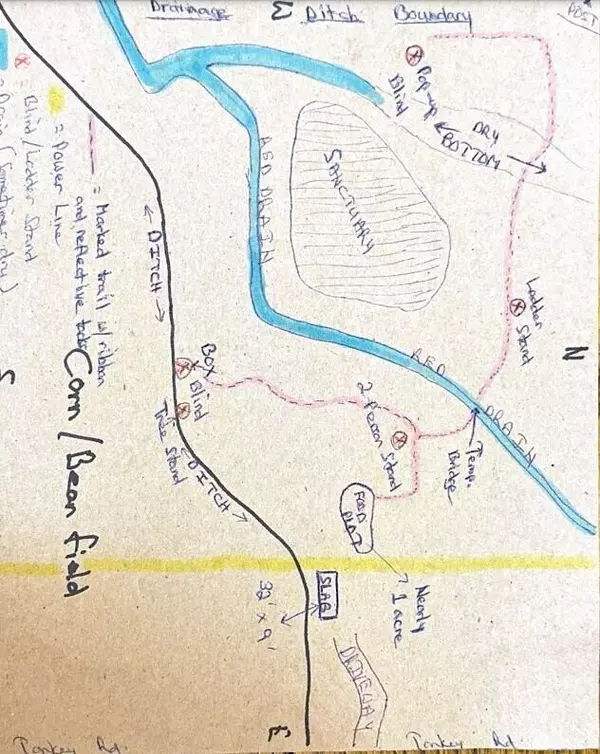 Drainage Ditch Boundary
POST
W
Pop-up
Blind
DRY
BOTTOM
AED DRAIN
SANCTUARY
← DITCH →
= Marked trail w/ ribbon
and reflective tacks
= Power Line
= Blind/Ladder Stand
= Drain (Sometimes dry)
Ladder
Stand
N
Box
Blind
Tree Stand
2 Person Stand
AED DRAIN
Temp.
Bridge
DITCH →
FOOD
PLOT
Nearly
1 acre
Corn / Bean field
S
SLAB
32' x 9'
DRIVEWAY
E
Tonkey Rd.
Tonkey Rd.